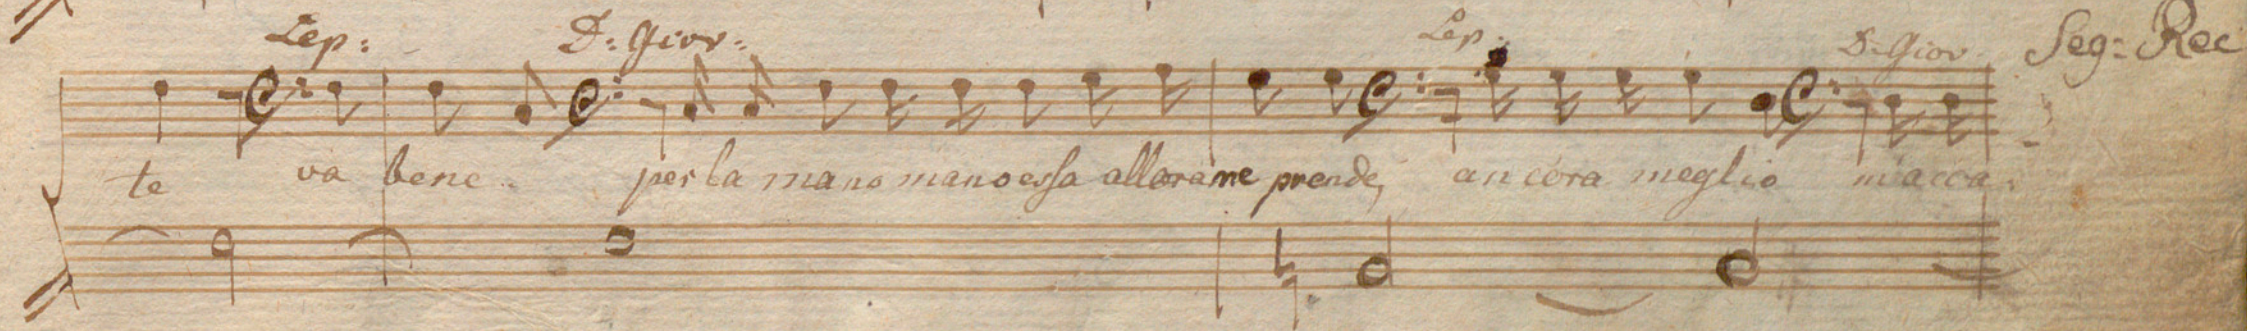 Lep: D: Giov: Lep: D: Giov Seg: Rec
te va bene per la mano mano essa allora me prende, ancora meglio m'acca: